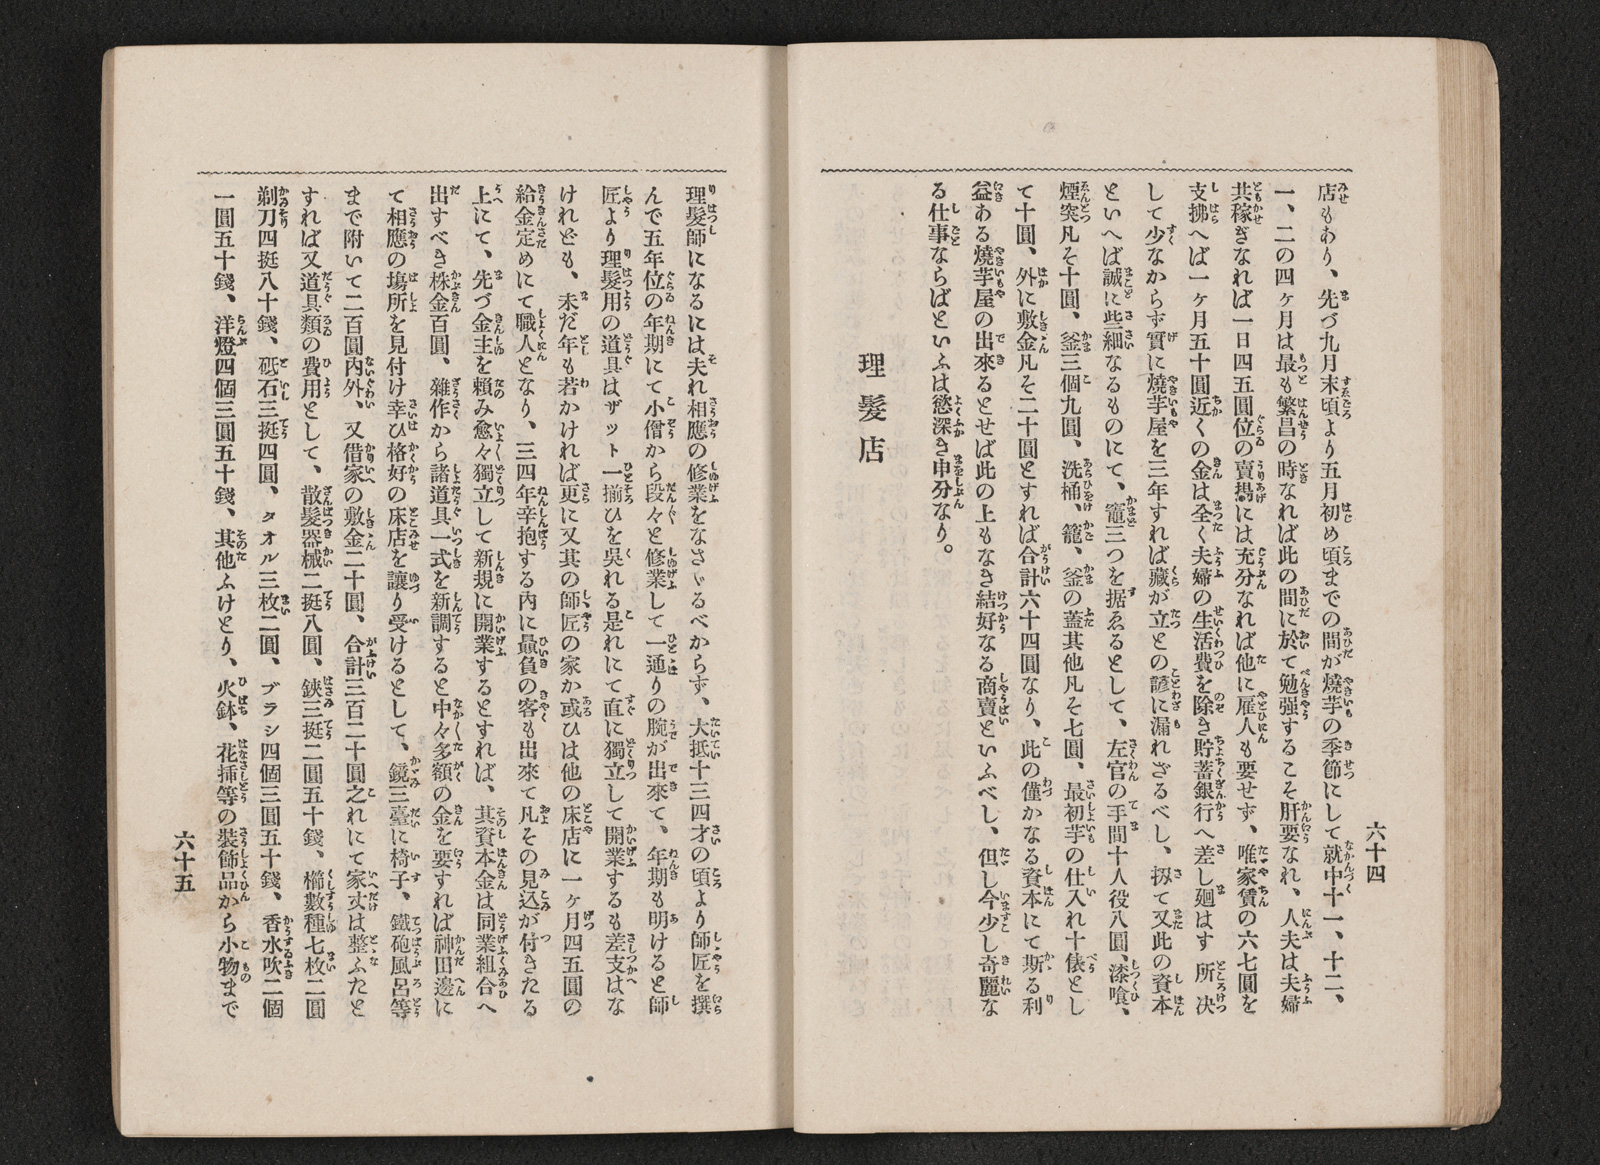 店もあり、先づ九月末頃より五月初め頃までの間が燒芋の季節にして就中十一、十二、
一、二の四ヶ月は最も繁昌の時なれば此の間に於て勉强するこそ肝要なれ、人夫は夫婦
共稼ぎなれば一日四五圓位の賣揚には充分なれば他に雇人も要せず、唯家賃の六七圓を
支拂へば一ヶ月五十圓近くの金は全く夫婦の生活費を除き貯蓄銀行へ差し廻はす 所决
して少なからず實に燒芋屋を三年すれば藏が立との諺に漏れざるべし、扨て又此の資本
といへば誠に些細なるものにて、竈三つを据ゑるとして、左官の手間十人役八圓、漆喰、
煙突凡そ十圓、釜三個九圓、洗桶、籠、釜の蓋其他凡そ七圓、最初芋の仕入れ十俵とし
て十圓、外に敷金凡そ二十圓とすれば合計六十四圓なり、此の僅かなる資本にて斯る利
益ある燒芋屋の出來るとせば此の上もなき結好なる商賣といふべし、但し今少し奇麗な
る仕事ならばといふは慾深き申分なり。
理髮店
六十四
理髮師になるには夫れ相應の修業をなさゞるべからず、大抵十三四才の頃より師匠を撰
んで五年位の年期にて小僧から段々と修業して一通りの腕が出來て、年期も明けると師
匠より理髮用の道具はザット一揃ひを吳れる是れにて直に獨立して開業するも差支はな
けれども、未だ年も若かければ更に又其の師匠の家か或ひは他の床店に一ヶ月四五圓の
給金定めにて職人となり、三四年辛抱する內に最負の客も出來て凡その見込が付きたる
上にて、先づ金主を賴み愈々獨立して新規に開業するとすれば、其資本金は同業組合へ
出すべき株金百圓、雜作から諸道具一式を新調すると中々多額の金を要すれば神田邊に
て相應の塲所を見付け幸ひ格好の床店を讓り受けるとして、鏡三臺に椅子、鐵砲風呂等
まで附いて二百圓內外、又借家の敷金二十圓、合計三百二十圓之れにて家丈は整ふたと
すれば又道具類の費用として、散髮器械二挺八圓、鋏三挺二圓五十錢、櫛數種七枚二圓
剃刀四挺八十錢、砥石三挺四圓、タオル三枚二圓、ブラシ四個三圓五十錢、香水吹二個
一圓五十錢、洋燈四個三圓五十錢、其他ふけとり、火鉢、花揷等の裝飾品から小物まで
六十五